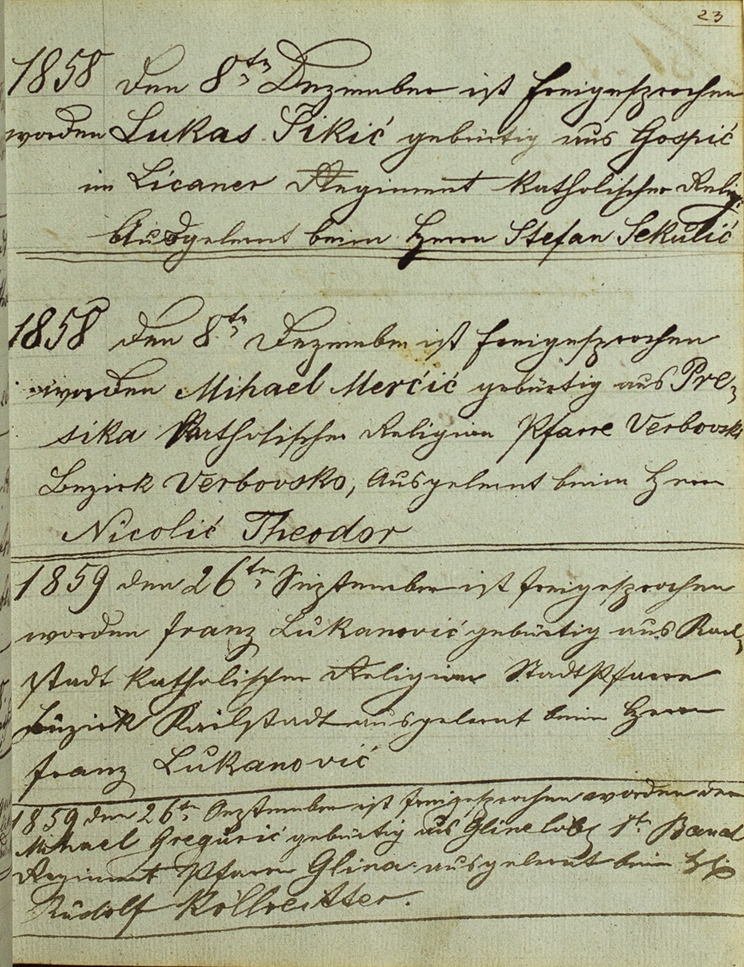 23
1858 den 8ten Dezember ist freigesprochen
worden Lukas Šikić gebürtig aus Gospić
im Licaner Regiment Katholischer Relig:
Ausgelernt beim Herrn Stefan Sekulić
1858 den 8ten Dezember ist freigesprochen
worden Mihael Merčić gebürtig aus Pre-
sika Katholischer Religion Pfarre Verbovsko
Bezirk Verbovsko, Ausgelernt beim Herrn
Nicolić Theodor
1859 den 26ten September ist freigesprochen
worden Franz Lukanović gebürtig aus Karl-
stadt Katholischer Religion StadtPfarre
Bezirk Karlstadt ausgelernt beim Herrn
Franz Lukanović
1859 den 26ten September ist freigesprochen worden der
Mihael Gregurić gebürtig aus Glina 1t Banal
Regiment Pfarre Glina ausgelernt beim
Rudolf Kollreitter.